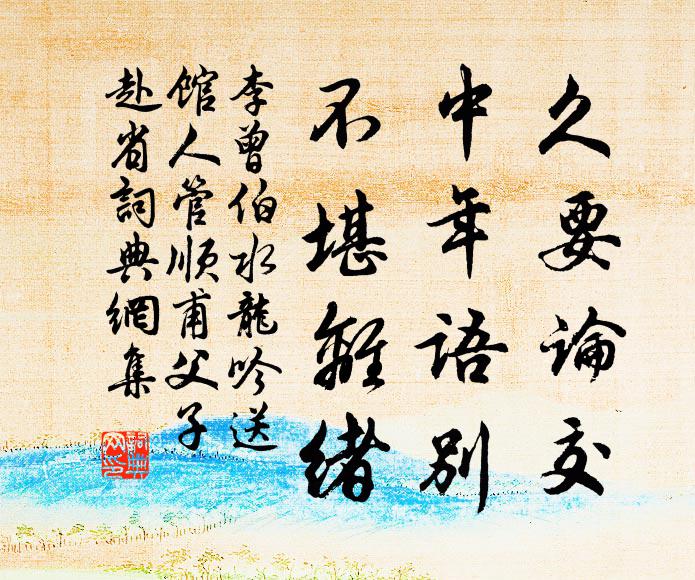 久要論交
中年語別
不堪離緒
李曾伯水龍吟送
館人管順甫父子
赴省詞典網集